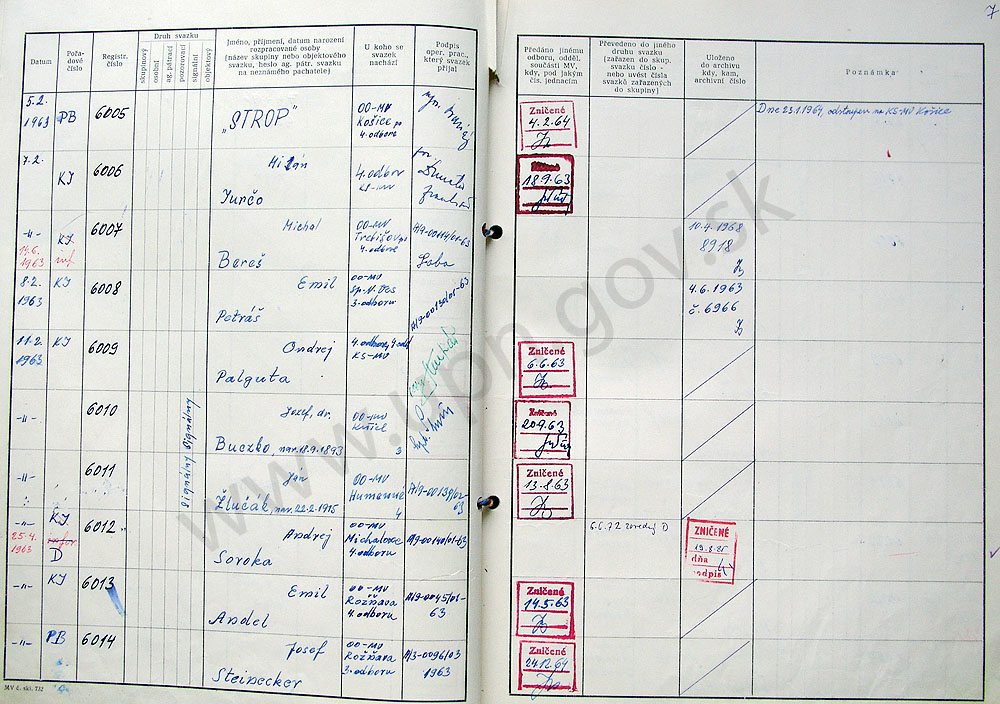 7
Datum
Pořadové číslo
Registr. číslo
Druh svazku
skupinový
osobní
ag. pátrací
pozorovací
signální
objektový
Jméno, příjmení, datum narození
rozpracované osoby
(název skupiny nebo objektového
svazku, heslo ag. pátr. svazku
na neznámého pachatele)
U koho se
svazek
nachází
Podpis
oper. prac.,
který svazek
přijal
Předáno jinému
odboru, odděl.
součásti MV,
kdy, pod jakým
čís. jednacím
Převedeno do jiného
druhu svazku
(zařazen do skup.
svazku číslo -
nebo uvést čísla
svazků zařazených
do skupiny)
Uloženo
do archivu
kdy, kam,
archivní číslo
Poznámka
5.2.
1963 PB 6005 „STROP"
OO-MV
Košice
4. odbor
Zničené
4.2.64
Dne 23.1.1964 odstoupen na KS-MV Košice
7.2. KI 6006 Milan
Jurčo
4. odbor
KS-MV
18.9.63
-"- KI 6007 Michal
14.6.
1963
Bereš
OO-MV
Trebišov
4. odboru
A/9-00114/01-63
10.4.1968
8918
8.2.
1963 KI 6008 Emil
Petráš
OO-MV
Sp. N. Ves
3. odboru
A/9-00130/01-63
4.6.1963
č. 6966
11.2.
1963 KI 6009 Ondrej
Palguta
KS-MV
Zničené
6.6.63
-"- 6010 Jozef, dr.
Buczko, nar. 18.9.1893
Signálny Signálny
OO-MV
20.9.63
-"- 6011 Ján
Žlučák, nar. 22.2.1915
OO-MV
Humenné
4
A/9-00139/02-
63
Zničené
13.8.63
-"- KI 6012 Andrej
25.4.
1963 D
Soroka
OO-MV
Michalovce
4. odboru
A/9-00140/01-63
6.6.72 D
ZNIČENÉ
dňa
podpis
-"- KI 6013 Emil
Andel
OO-MV
Rožňava
4. odboru
A/9-0045/01-
63
Zničené
14.5.63
-"- PB 6014 Josef
Steinecker
OO-MV
Rožňava
3. odboru
A/3-0096/03
1963
Zničené
24.12.64
MV č. skl. 732
www.upn.gov.sk